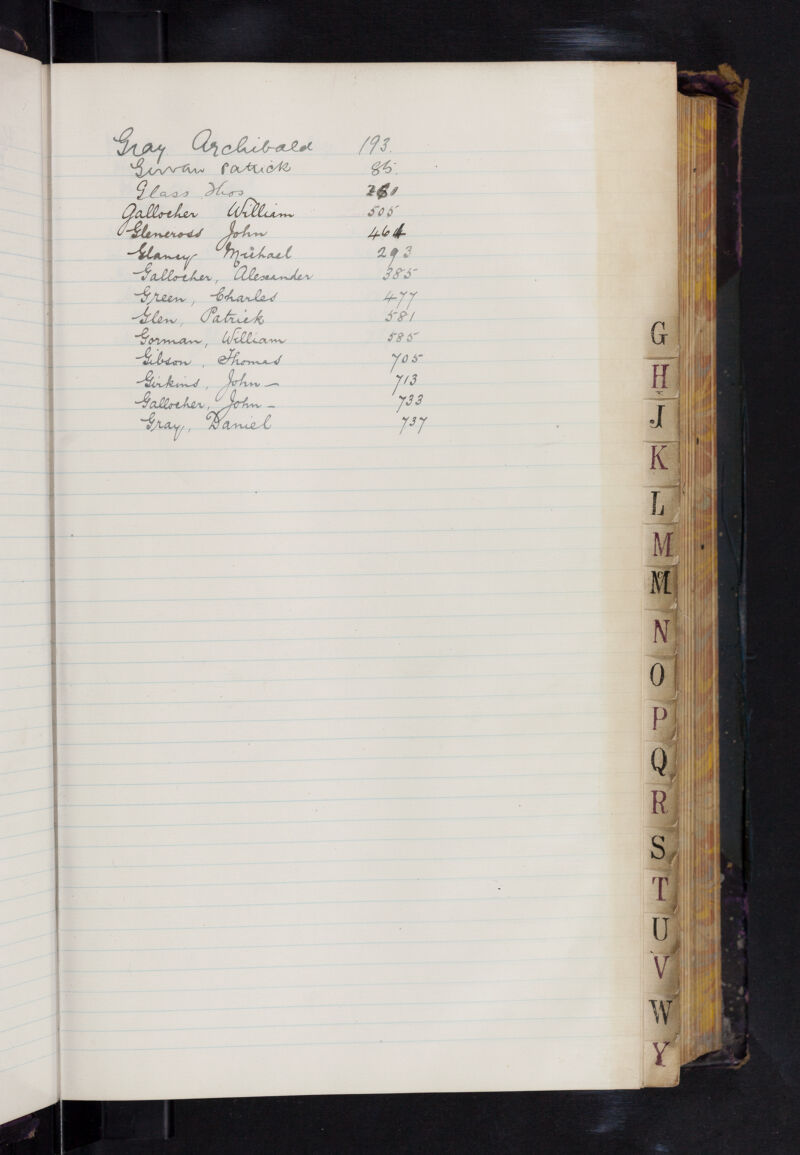 Gray Archibald 193.
Girvan Patrick 85.
Glass Thos
Gallocher William 505
Glencross John 461
Glancy Michael 293
Gallocher, Alexander 385
Green, Charles 477
Glen, Patrick 581
Gorman, William 585
Gibson, Thomas 705
Girkins, John — 713
Gallocher, John — 733
Gray, Daniel 737
G
H
J
K
L
M
Mc
N
O
P
Q
R
S
T
U
V
W
Y